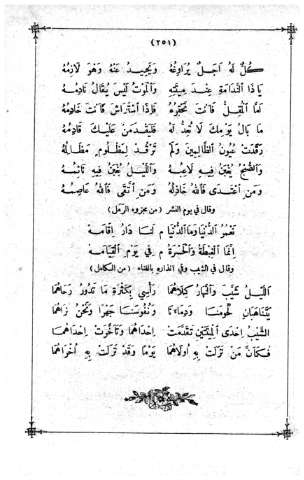 (٢٥١)
كُلٌّ لَهُ أَجَلٌ يُرَاوِغُهُ وَيَحِيدُ عَنْهُ وَهْوَ لَازِمُهُ
يَا ذَا النَّدَامَةِ عِنْدَ مِيتَتِهِ وَالْمَوْتُ لَيْسَ يُقَالُ نَادِمُهُ
أَمَّا الْمُقِلُّ فَأَنْتَ تَحْقِرُهُ فَإِذَا اسْتَرَاشَ فَأَنْتَ خَادِمُهُ
مَا بَالُ يَوْمِكَ لَا تُعِدُّ لَهُ فَلَيَقْدَمَنَّ عَلَيْكَ قَادِمُهُ
رَقَدَتْ عُيُونُ الظَّالِمِينَ وَلَمْ تَرْقُدْ لِمَظْلُومٍ مَظَالِمُهُ
وَالصُّبْحُ يُغْبَنُ فِيهِ لَاعِبُهُ وَاللَّيْلُ يُغْبَنُ فِيهِ نَائِمُهُ
وَمَنِ اعْتَدَى فَاللهُ خَاذِلُهُ وَمَنِ اتَّقَى فَاللهُ عَاصِمُهُ
وقال في يوم النشر (من مجزوء الرمل)
الدُّنْيَا وَمَا الدُّنْيَا م لَنَا دَارُ إِقَامَهْ
إِنَّمَا الْغِبْطَةُ وَالْحَسْرَةُ م فِي يَوْمِ الْقِيَامَهْ
وقال في الشيب وفي بالفناء (من الكامل)
اَللَّيْلُ شَيَّبَ وَالنَّهَارُ كِلَاهُمَا رَأْسِي بِكَثْرَةِ مَا تَدُورُ رَحَاهُمَا
يَتَنَاهَبَانِ لُحُومَنَا وَدِمَاءَنَا وَنُفُوسَنَا جَهْرًا وَنَحْنُ نَرَاهُمَا
اَلشَّيْبُ إِحْدَى الْمِيتَتَيْنِ تَقَدَّمَتْ إِحْدَاهُمَا وَتَأَخَّرَتْ إِحْدَاهُمَا
فَكَأَنَّ مَنْ نَزَلَتْ بِهِ أُولَاهُمَا يَوْمًا وَقَدْ نَزَلَتْ بِهِ أُخْرَاهُمَا